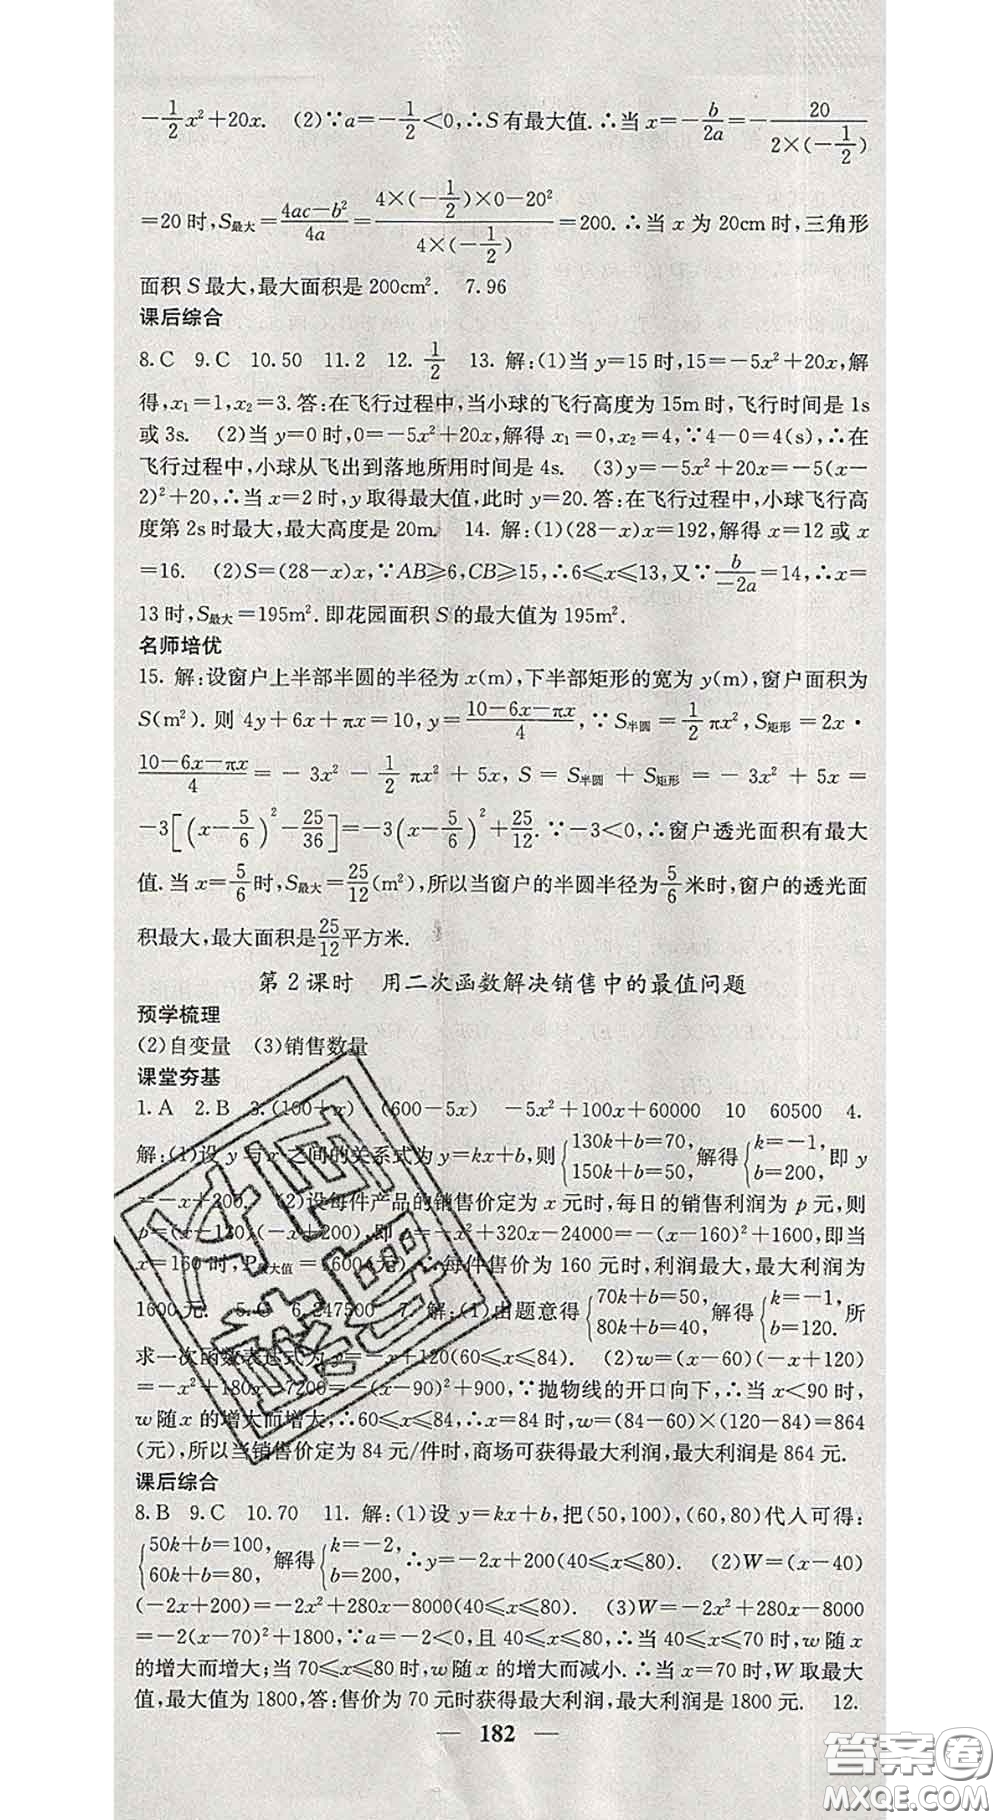 −1/2x²+20x. (2)∵a=−1/2<0,∴S有最大值.∴当x=−b/2a=−20/(2×(−1/2))
=20时,S最大=(4ac−b²)/4a=(4×(−1/2)×0−20²)/(4×(−1/2))=200.∴当x为20cm时,三角形
面积S最大,最大面积是200cm². 7.96
课后综合
8.C 9.C 10.50 11.2 12.1/2 13.解:(1)当y=15时,15=−5x²+20x,解
得,x₁=1,x₂=3.答:在飞行过程中,当小球的飞行高度为15m时,飞行时间是1s
或3s. (2)当y=0时,0=−5x²+20x,解得x₁=0,x₂=4,∵4−0=4(s),∴在
飞行过程中,小球从飞出到落地所用时间是4s. (3)y=−5x²+20x=−5(x−
2)²+20,∴当x=2时,y取得最大值,此时y=20.答:在飞行过程中,小球飞行高
度第2s时最大,最大高度是20m. 14.解:(1)(28−x)x=192,解得x=12或x
=16. (2)S=(28−x)x,∵AB⩾6,CB⩾15,∴6⩽x⩽13,又∵b/−2a=14,∴x=
13时,S最大=195m².即花园面积S的最大值为195m².
名师培优
15.解:设窗户上半部半圆的半径为x(m),下半部矩形的宽为y(m),窗户面积为
S(m²).则4y+6x+πx=10,y=(10−6x−πx)/4,∵S半圆=1/2πx²,S矩形=2x·
(10−6x−πx)/4=−3x²−1/2πx²+5x,S=S半圆+S矩形=−3x²+5x=
−3[(x−5/6)²−25/36]=−3(x−5/6)²+25/12.∵−3<0,∴窗户透光面积有最大
值.当x=5/6时,S最大=25/12(m²),所以当窗户的半圆半径为5/6米时,窗户的透光面
积最大,最大面积是25/12平方米.
第2课时 用二次函数解决销售中的最值问题
预学梳理
(2)自变量 (3)销售数量
课堂夯基
1.A 2.B 3.(100+x) (600−5x) −5x²+100x+60000 10 60500 4.
解:(1)设y与x之间的关系式为y=kx+b,则{130k+b=70,150k+b=50,解得{k=−1,b=200,即y
=−x+200. (2)设每件产品的销售价定为x元时,每日的销售利润为p元,则
p=(x−120)(−x+200),即p=−x²+320x−24000=−(x−160)²+1600,即当
x=160时,P最大值=1600(元).∴每件售价为160元时,利润最大,最大利润为
1600元. 5.C 6.247500 7.解:(1)由题意得{70k+b=50,80k+b=40,解得{k=−1,b=120.所
求一次函数表达式为y=−x+120(60⩽x⩽84). (2)w=(x−60)(−x+120)
=−x²+180x−7200=−(x−90)²+900,∵抛物线的开口向下,∴当x<90时,
w随x的增大而增大,∴60⩽x⩽84,∴当x=84时,w=(84−60)×(120−84)=864
(元),所以当销售价定为84元/件时,商场可获得最大利润,最大利润是864元.
课后综合
8.B 9.C 10.70 11.解:(1)设y=kx+b,把(50,100),(60,80)代人可得:
{50k+b=100,60k+b=80,解得{k=−2,b=200,∴y=−2x+200(40⩽x⩽80). (2)W=(x−40)
(−2x+200)=−2x²+280x−8000(40⩽x⩽80). (3)W=−2x²+280x−8000
=−2(x−70)²+1800,∵a=−2<0,且40⩽x⩽80,∴当40⩽x⩽70时,w随x
的增大而增大;当70⩽x⩽80时,w随x的增大而减小.∴当x=70时,W取最大
值,最大值为1800,答:售价为70元时获得最大利润,最大利润是1800元. 12.
— 182 —
答案圈
MXQE.COM